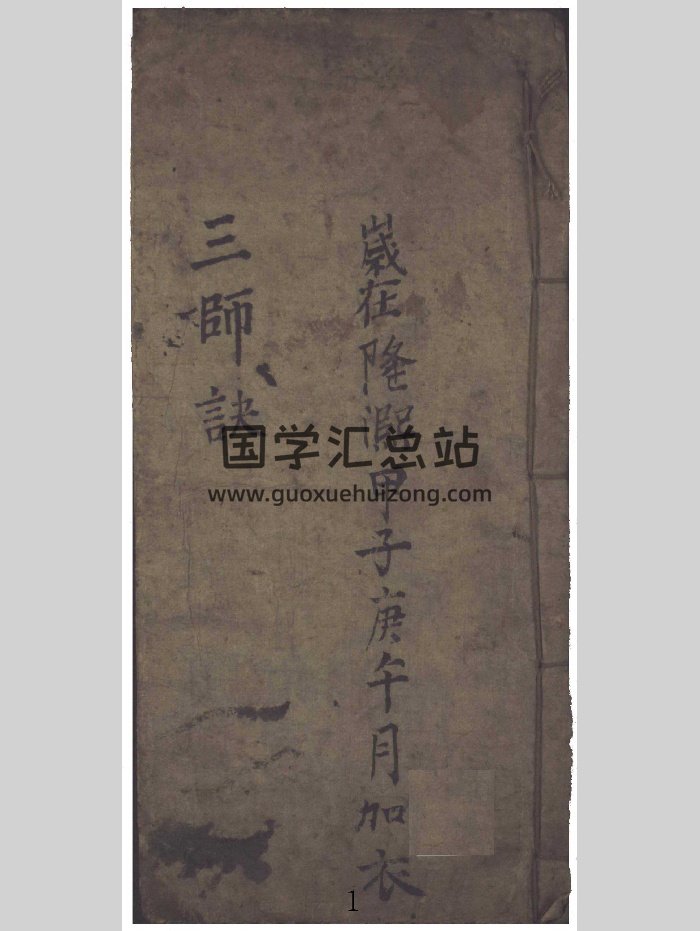 歲在隆熙甲子庚午月加衣
三師訣
国学汇总站
www.guoxuehuizong.com
1